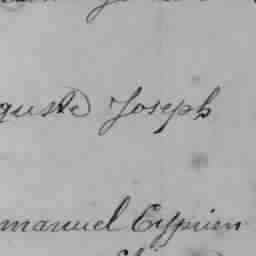 guste Joseph
manuel Cyprien